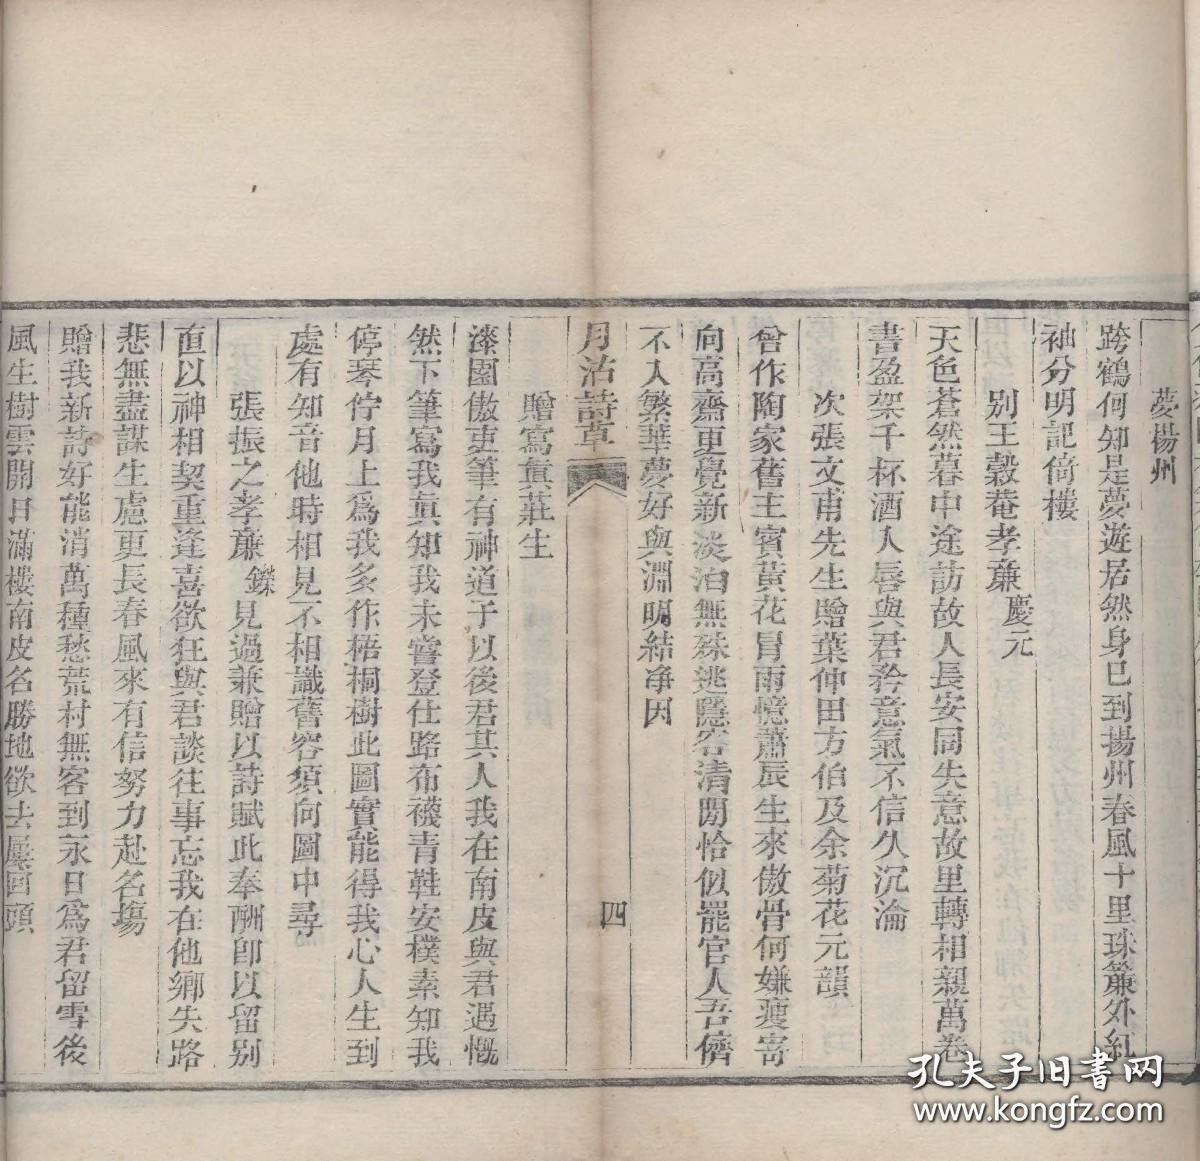 夢揚州
跨鶴何知是夢遊居然身已到揚州春風十里珠簾外紅
袖分明記倚樓
別王穀菴孝廉慶元
天色蒼然暮中途訪故人長安同失意故里轉相親萬卷
書盈架千杯酒入脣與君矜意氣不信久沉淪
次張文甫先生贈葉仲田方伯及余菊花元韻
曾作陶家舊主賓黃花冒雨憶蕭辰生來傲骨何嫌瘦寄
向高齋更覺新淡泊無殊逃隱客清閒恰似罷官人吾儕
不入繁華夢好與淵明結淨因
月沽詩草
四
贈寫真莊生
漆園傲吏筆有神道子以後君其人我在南皮與君遇慨
然下筆寫我真知我未嘗登仕路布襪青鞋安樸素知我
停琴佇月上爲我多作梧桐樹此圖實能得我心人生到
處有知音他時相見不相識舊容須向圖中尋
張振之孝廉鑅見過兼贈以詩賦此奉酬即以留別
直以神相契重逢喜欲狂與君談往事忘我在他鄉失路
悲無盡謀生慮更長春風來有信努力赴名塲
贈我新詩好能消萬種愁荒村無客到永日爲君留雪後
風生樹雲開日滿樓南皮名勝地欲去屢回頭
孔夫子旧書网
www.kongfz.com